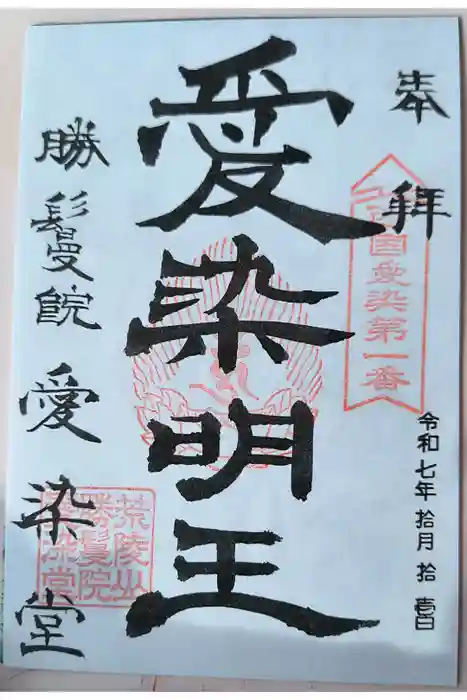 奉拝
西国愛染第一番
令和七年拾月拾壱日
愛染明王
勝鬘院愛染堂
荒陵山
勝鬘院
愛染堂